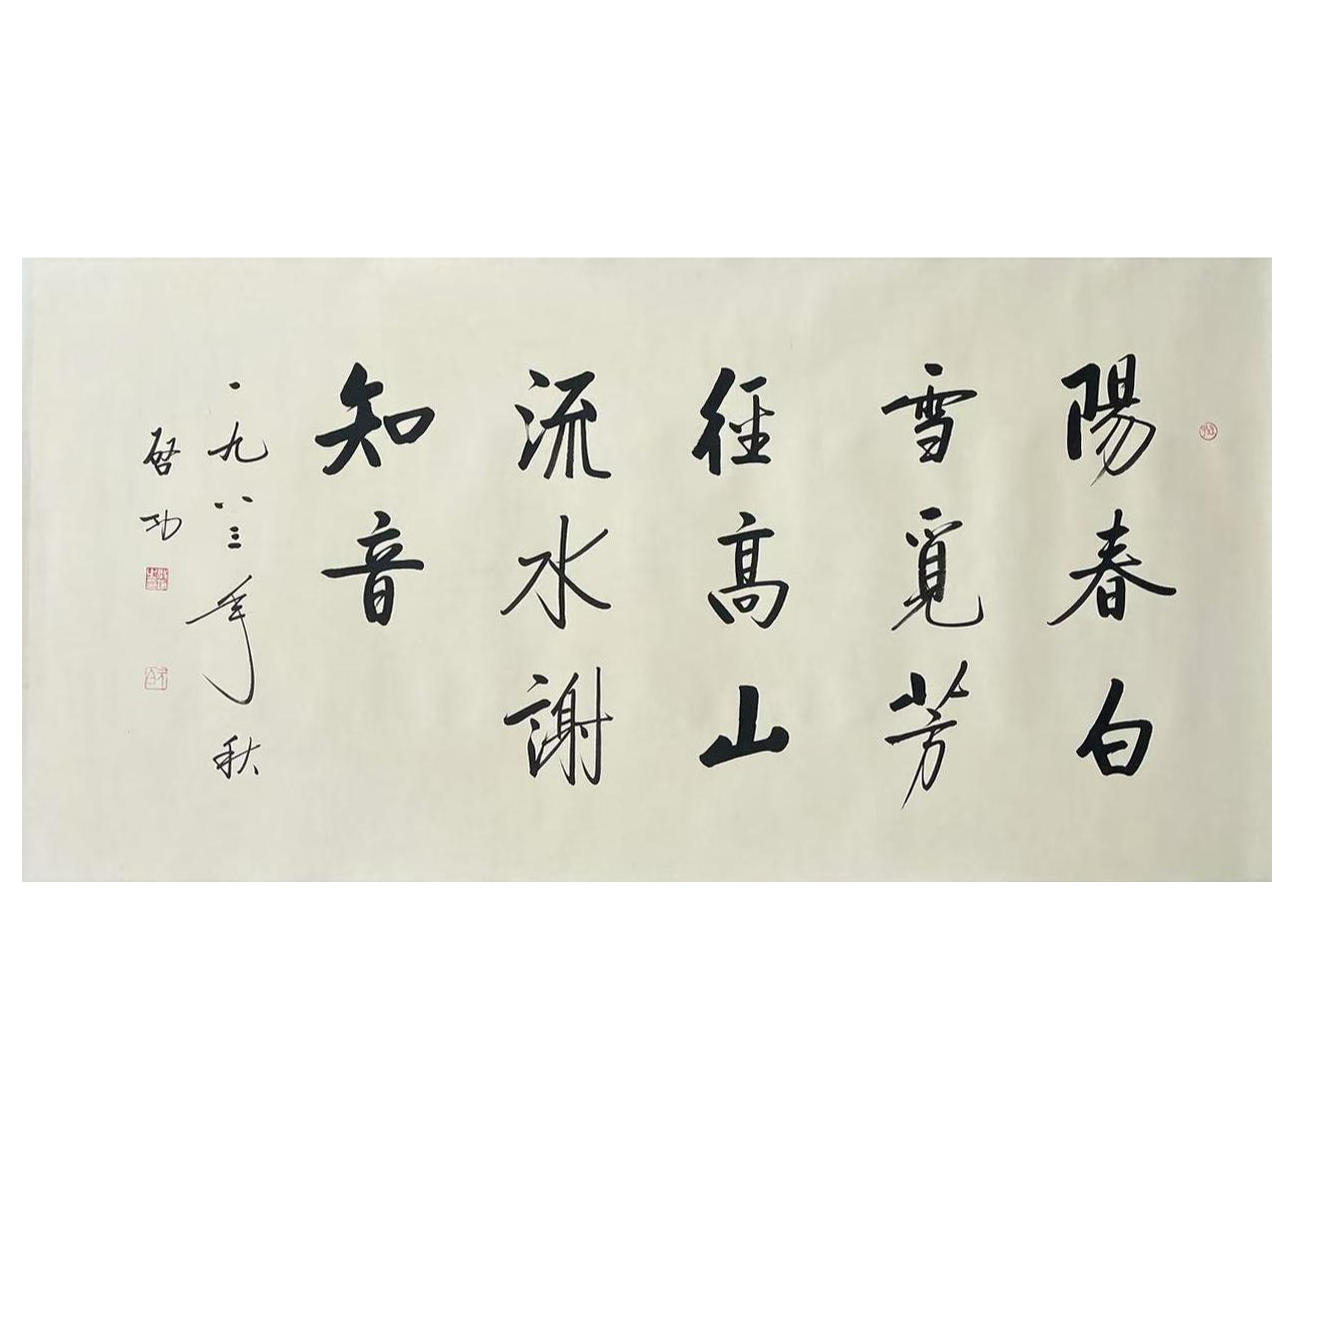 陽春白
雪覓芳
徑高山
流水謝
知音
一九八三年秋
啓功